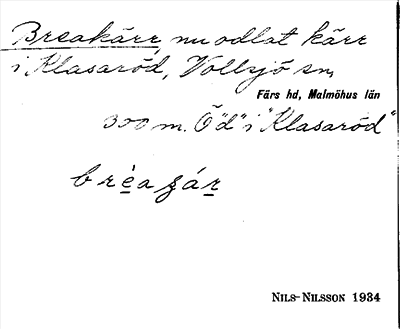 Breakärr, nu odlat kärr
i Klasaröd, Vollsjö sn,
Färs hd, Malmöhus län
300 m. Ö "d" i "Klasaröd"
brèaʒár
NILS-NILSSON 1934